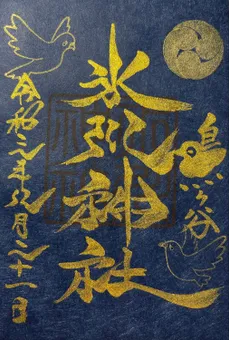 鳩ヶ谷
氷川神社
令和年月二十一日